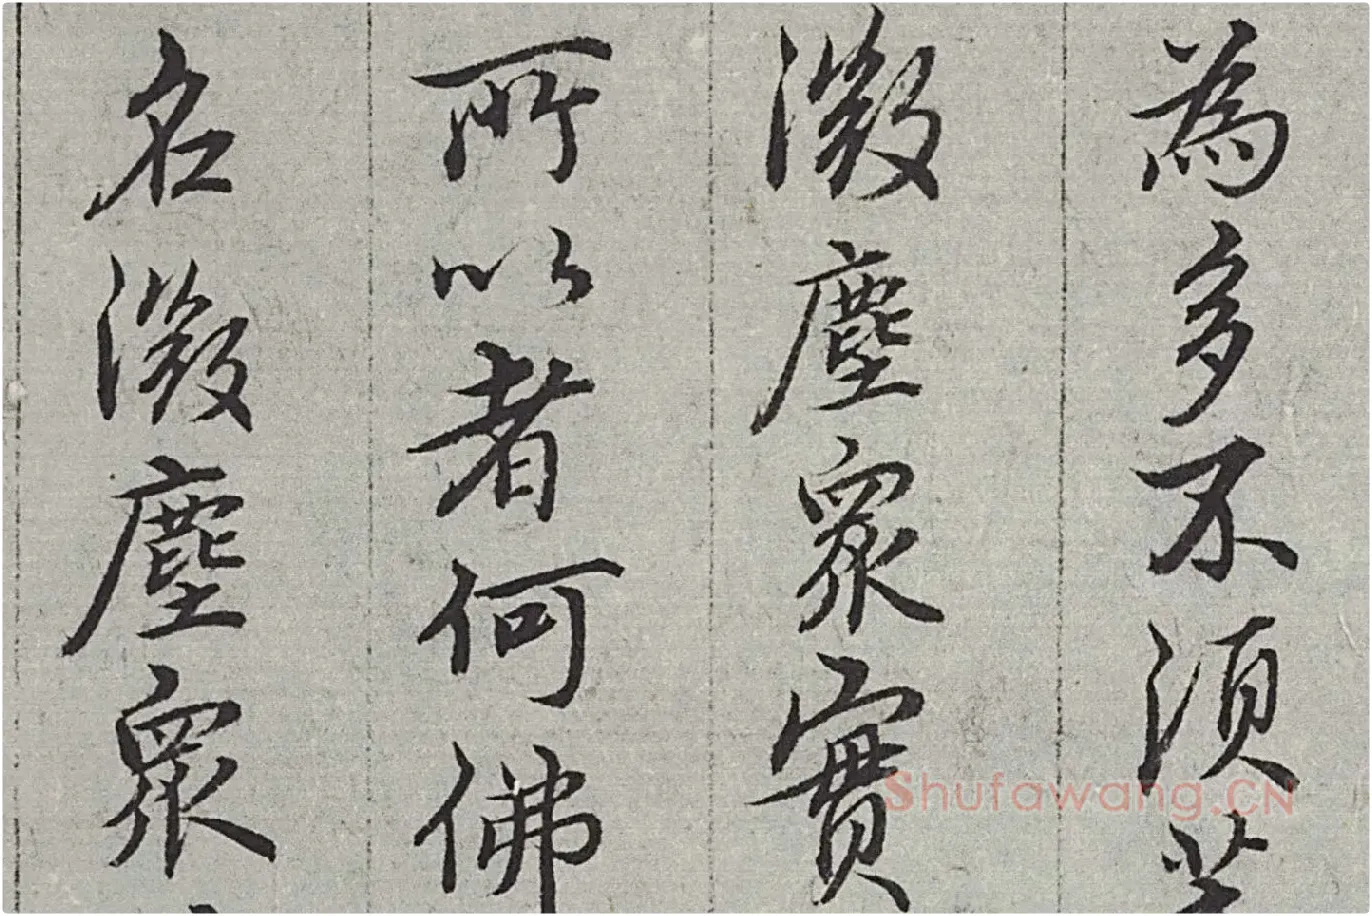 為多不須菩
微塵眾實
所以者何佛
名微塵眾
Shufawang.CN